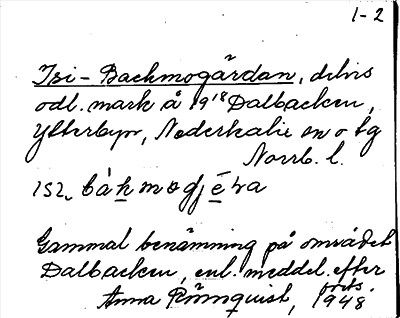 1-2
Isi-Backmogärdan, delvis
odl. mark å 19¹⁸ Dalbacken,
Ytterbyn, Nederkalix sn o tg
Norrb. l.
Gammal benämning på området
Dalbacken, enl. meddel. efter
Anna Rönnquist, födts 1948